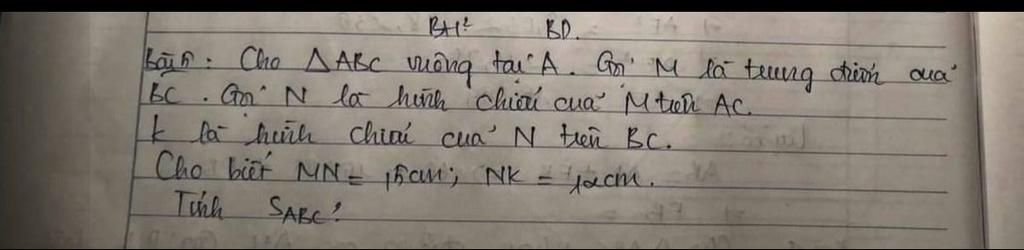 BH² BD.
Bài : Cho △ABC vuông tại A. Gọi M là trung điểm của
BC. Gọi N là hình chiếu của M trên AC.
K là hình chiếu của N trên BC.
Cho biết MN = 15cm; NK = 12cm.
Tính SABC?